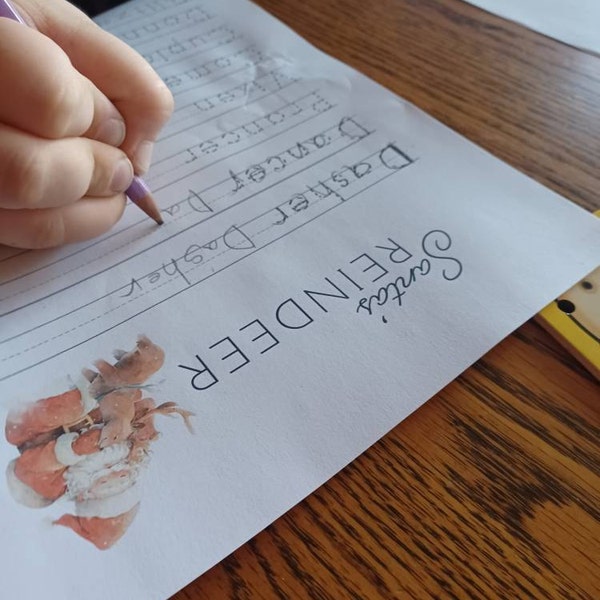 Santa's
REINDEER
Dasher Dasher
Dancer Da
Prancer
Vixen
Come
Cupid
Donn